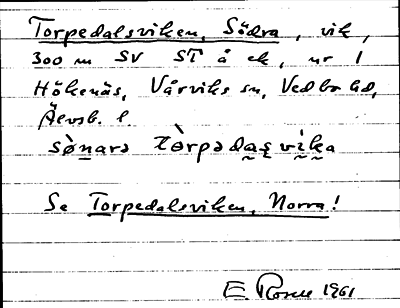 Torpedalsviken, Södra, vik,
300 m SV ST å ek, nr 1
Hökenäs, Vårviks sn, Vedbo hd,
Älvsb. l.
sò̱narə tòrpədas̱vi̱ka
Se Torpedalsviken, Norra!
E. Rosell 1961